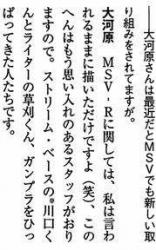 ――大河原さんは最近だとMSVでも新しい取
り組みをされてますが。
大河原　MSV‐Rに関しては、私は言わ
れるままに描いただけですよ（笑）、この
へんはもう思い入れのあるスタッフがおり
ますので。ストリーム・ベースの川口く
んとライターの草刈くん、ガンプラをひっ
ぱってきた人たちです。